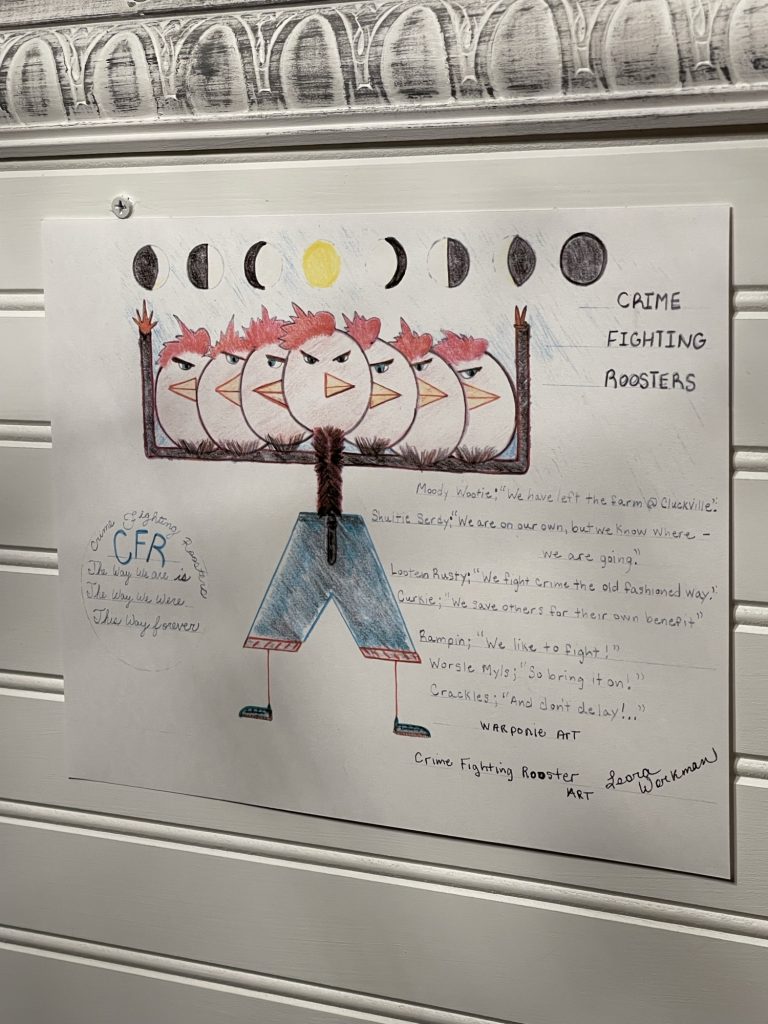 CRIME
FIGHTING
ROOSTERS
Moody Wootie; "We have left the farm @ Cluckville".
Shultie Serdy; "We are on our own, but we know where -
we are going."
Lootem Rusty; "We fight crime the old fashioned way."
Curkie; "We save others for their own benefit"
Rampin; "We like to fight!"
Worsle Myls; "So bring it on!"
Crackles; "And don't delay!..."
WARPONIE ART
Crime Fighting Rooster
ART
Leora
Workman
Crime Fighting Roosters
CFR
The Way We are is
The Way We Were
This Way forever